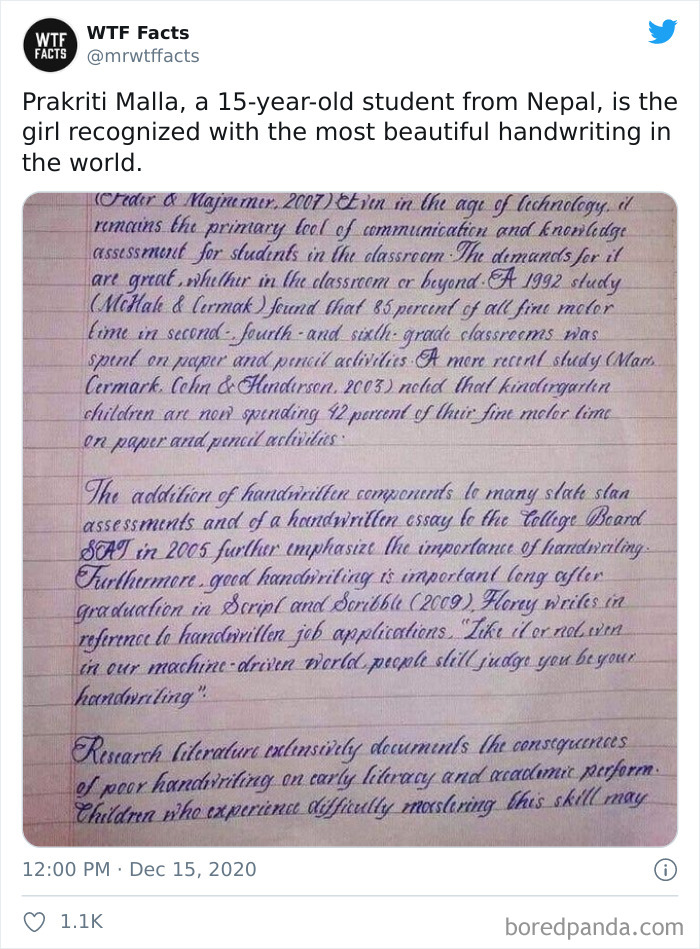 WTF FACTS
WTF Facts
@mrwtffacts
Prakriti Malla, a 15-year-old student from Nepal, is the
girl recognized with the most beautiful handwriting in
the world.
(Feder & Majnemer, 2007) Even in the age of technology, it
remains the primary tool of communication and knowledge
assessment for students in the classroom. The demands for it
are great, whether in the classroom or beyond. A 1992 study
(McHale & Cermak) found that 85 percent of all fine motor
time in second-, fourth- and sixth-grade classrooms was
spent on paper and pencil activities. A more recent study (Marr,
Cermark, Cohn & Henderson, 2003) noted that kindergarten
children are now spending 42 percent of their fine motor time
on paper and pencil activities.
The addition of handwritten components to many state stan
assessments and of a handwritten essay to the College Board
SAT in 2005 further emphasize the importance of handwriting.
Furthermore, good handwriting is important long after
graduation in Script and Scribble (2009), Florey writes in
reference to handwritten job applications, "Like it or not, even
in our machine-driven world, people still judge you be your
handwriting".
Research literature extensively documents the consequences
of poor handwriting on early literacy and academic perform.
Children who experience difficulty mastering this skill may
12:00 PM · Dec 15, 2020
1.1K
boredpanda.com